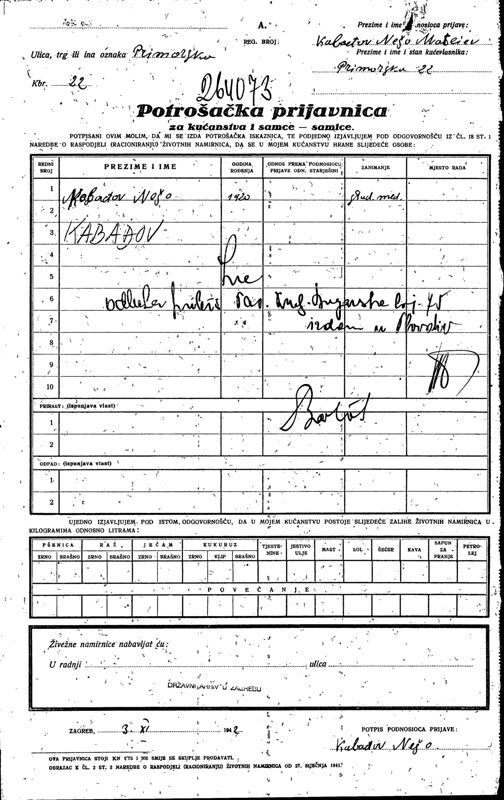 A.
REG. BROJ:
Prezime i ime podnosioca prijave:
Kabadov Nešo
Prezime i ime i stan kućevlasnika:
Primorjska 22
Ulica, trg ili ina oznaka Primorjska
Kbr. 22
264073
Potrošačka prijavnica
za kućanstva i samce — samice.
POTPISANI OVIM MOLIM, DA MI SE IZDA POTROŠAČKA ISKAZNICA, TE PODJEDNO IZJAVLJUJEM POD ODGOVORNOŠĆU IZ ČL. 18 ST. 1
NAREDBE O RASPODJELI (RACIONIRANJU) ŽIVOTNIH NAMIRNICA, DA SE U MOJEM KUĆANSTVU HRANE SLIJEDEĆE OSOBE:
REDNI BROJ PREZIME I IME GODINA ROĐENJA ODNOS PREMA PODNOSIOCU PRIJAVE ODN. STARJEŠINI ZANIMANJE MJESTO RADA
1 Kabadov Nešo 1920 stud. med.
2
3 KABADOV
4
5
6
7 izdan u Plovdiv
8
9
10
PRIRAST: (ispunjava vlast)
1
2
ODPAD: (ispunjava vlast)
1
2
UJEDNO IZJAVLJUJEM POD ISTOM ODGOVORNOŠĆU, DA U MOJEM KUĆANSTVU POSTOJE SLIJEDEĆE ZALIHE ŽIVOTNIH NAMIRNICA U
KILOGRAMIMA ODNOSNO LITRAMA:
PŠENICA RAŽ JEČAM KUKURUZ TJESTENINE JESTIVO ULJE MAST SOL ŠEĆER KAVA SAPUN ZA PRANJE PETROLEJ
ZRNO BRAŠNO ZRNO BRAŠNO ZRNO BRAŠNO ZRNO KLIP BRAŠNO
POVEĆANJE
Živežne namirnice nabavljat ću:
U radnji ulica
DRŽAVNI ARHIV U ZAGREBU
ZAGREB, 3 XI 1942
POTPIS PODNOSIOCA PRIJAVE:
Kabadov Nešo.
OVA PRIJAVNICA STOJI KN 0.75 I NE SMIJE SE SKUPLJE PRODAVATI.
OBRAZAC K ČL. 2 ST. 2 NAREDBE O RASPODJELI (RACIONIRANJU) ŽIVOTNIH NAMIRNICA OD 27. SIJEČNJA 1941.